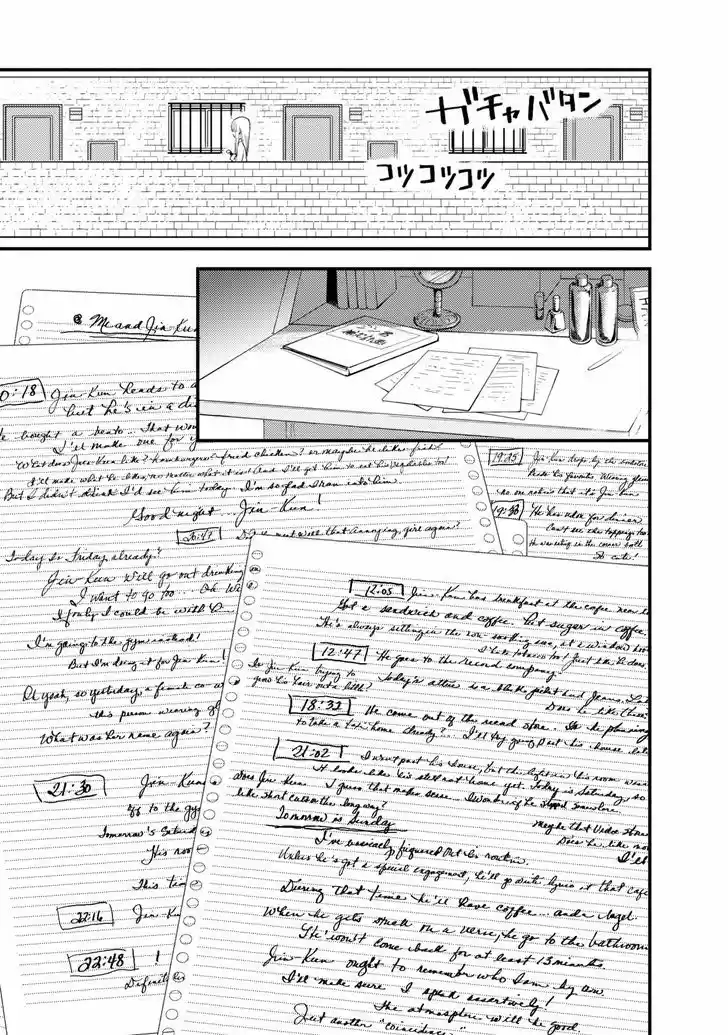 ガチャバタン
コツコツコツ
Me and Jin-Kun
0:18 Jin Kun heads to
but he's in a
bought a bento... That
I'll make one for
What does Jin-Kun like? Hamburgers? Fried chicken? or maybe he likes fish?
I'll make what he likes, no matter what it is! And I'll get him to eat his vegetables too!
But I didn't think I'd see him today. I'm so glad I ran into him.
Good night... Jin-Kun!
20:47 Did he meet with that annoying girl again?
Today is Friday already?
Jin-Kun will go out drinking
I want to go too... Oh
I could be with
I'm going to the gym instead!
But I'm doing it for Jin Kun!
Oh yeah, so yesterday, a female co-
this person wearing
What was her name again?
21:30 Jin-Kun
go to the gy
Tomorrow's Saturd
His roo
This tim
22:16 Jin-Kun
22:48 !
Definit
19:25 Jin-kun drops by the
no one notices that it's Jin-kun
19:38 He has udon for dinner
Can't see the toppings too
He was eating in the corner both
So cute!
12:05 Jin-Kun has breakfast at the cafe near
Got a sandwich and coffee. Put sugar in coffee.
He's always sitting in the non-smoking area, at a window
I hate tobacco too! Just like he does.
12:47 He goes to the record company.
Today's attire is a black jacket and jeans.
Is Jin Kun trying to
grow his hair out a little?
Does he like these
18:32 He came out of the record store. Is he planning
to take a taxi home already?... I'll try going past his house
21:02 I went past his house, but the light in his room
It looks like he's still not home yet. Today is Saturday, so
I guess that makes sense... I wonder if he stopped somewhere.
does Jin Kun
like short cuts or the long way?
Maybe that video store
Does he like
I'll
Tomorrow is Sunday
I've basically figured out his routine.
Unless he's got a special engagement, he'll go write lyrics at that cafe
During that time he'll have coffee... and a bagel
When he gets stuck on a verse, he go to the bathroom
He won't come back for at least 15 minutes.
Jin-Kun ought to remember who I am by now.
I'll make sure I speak assertively!
The atmosphere will be good.
Just another "coincidence"